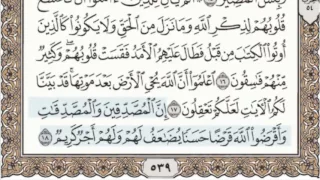 قُلُوبُهُمْ لِذِكْرِ ٱللَّهِ وَمَا نَزَلَ مِنَ ٱلْحَقِّ وَلَا يَكُونُوا۟ كَٱلَّذِينَ
أُوتُوا۟ ٱلْكِتَٰبَ مِن قَبْلُ فَطَالَ عَلَيْهِمُ ٱلْأَمَدُ فَقَسَتْ قُلُوبُهُمْ وَكَثِيرٌ
مِّنْهُمْ فَٰسِقُونَ ١٦ ٱعْلَمُوٓا۟ أَنَّ ٱللَّهَ يُحْىِ ٱلْأَرْضَ بَعْدَ مَوْتِهَا قَدْ بَيَّنَّا
لَكُمُ ٱلْءَايَٰتِ لَعَلَّكُمْ تَعْقِلُونَ ١٧ إِنَّ ٱلْمُصَّدِّقِينَ وَٱلْمُصَّدِّقَٰتِ
وَأَقْرَضُوا۟ ٱللَّهَ قَرْضًا حَسَنًا يُضَٰعَفُ لَهُمْ وَلَهُمْ أَجْرٌ كَرِيمٌ ١٨
٥٣٩